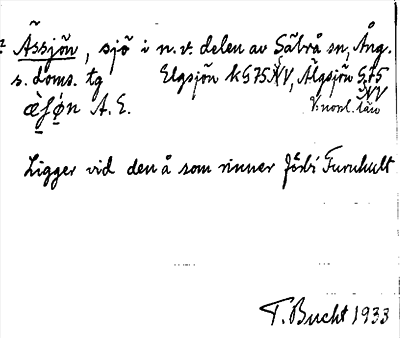 Ässjön, sjö i n.v. delen av Säbrå sn, Ång.
s. doms. tg Elgsjön kG75NV, Älgsjön G.75
NV
æ̀ʃǿn A.E.
Ligger vid den å som rinner förbi Furuhult
T. Bucht 1933